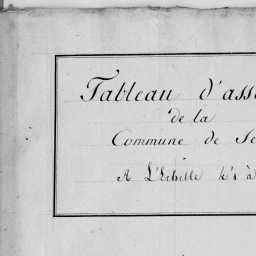 Tableau d'ass
de la
Commune de Sc
A L'Echelle de 1 à